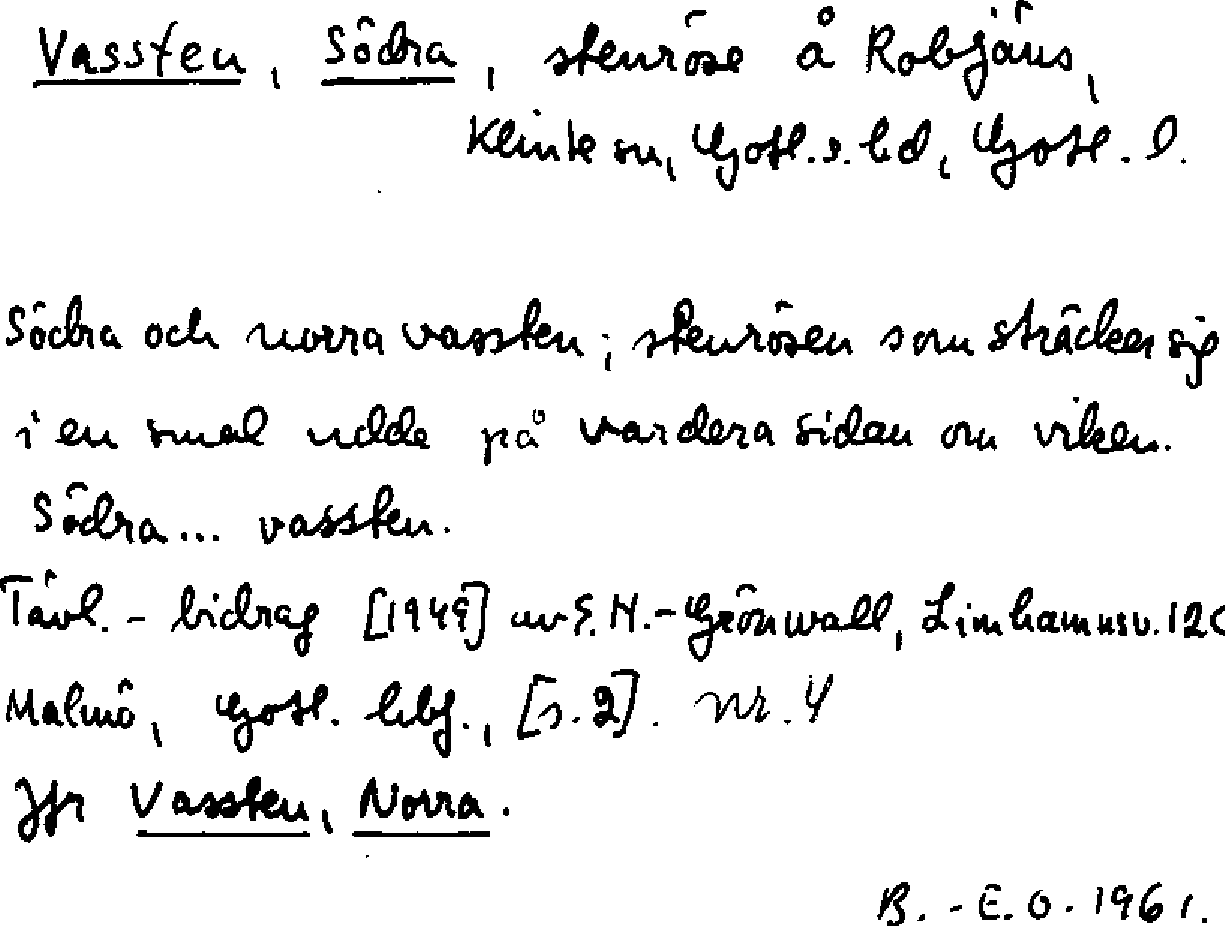 Vassten, Södra, stenröse å Robjäns,
Klinte sn, Gotl. s. hd, Gotl. l.
Södra och norra vassten; stenrösen som sträcker sig
i en smal udde på vardera sidan om viken.
Södra... vassten.
Tävl.-bidrag [1949] av E. N.-Grönwall, Limhamnsv. 12
Malmö, Gotl. hbf., [s. 2]. nr. 4
Jfr Vassten, Norra.
B.-E. O. 1961.